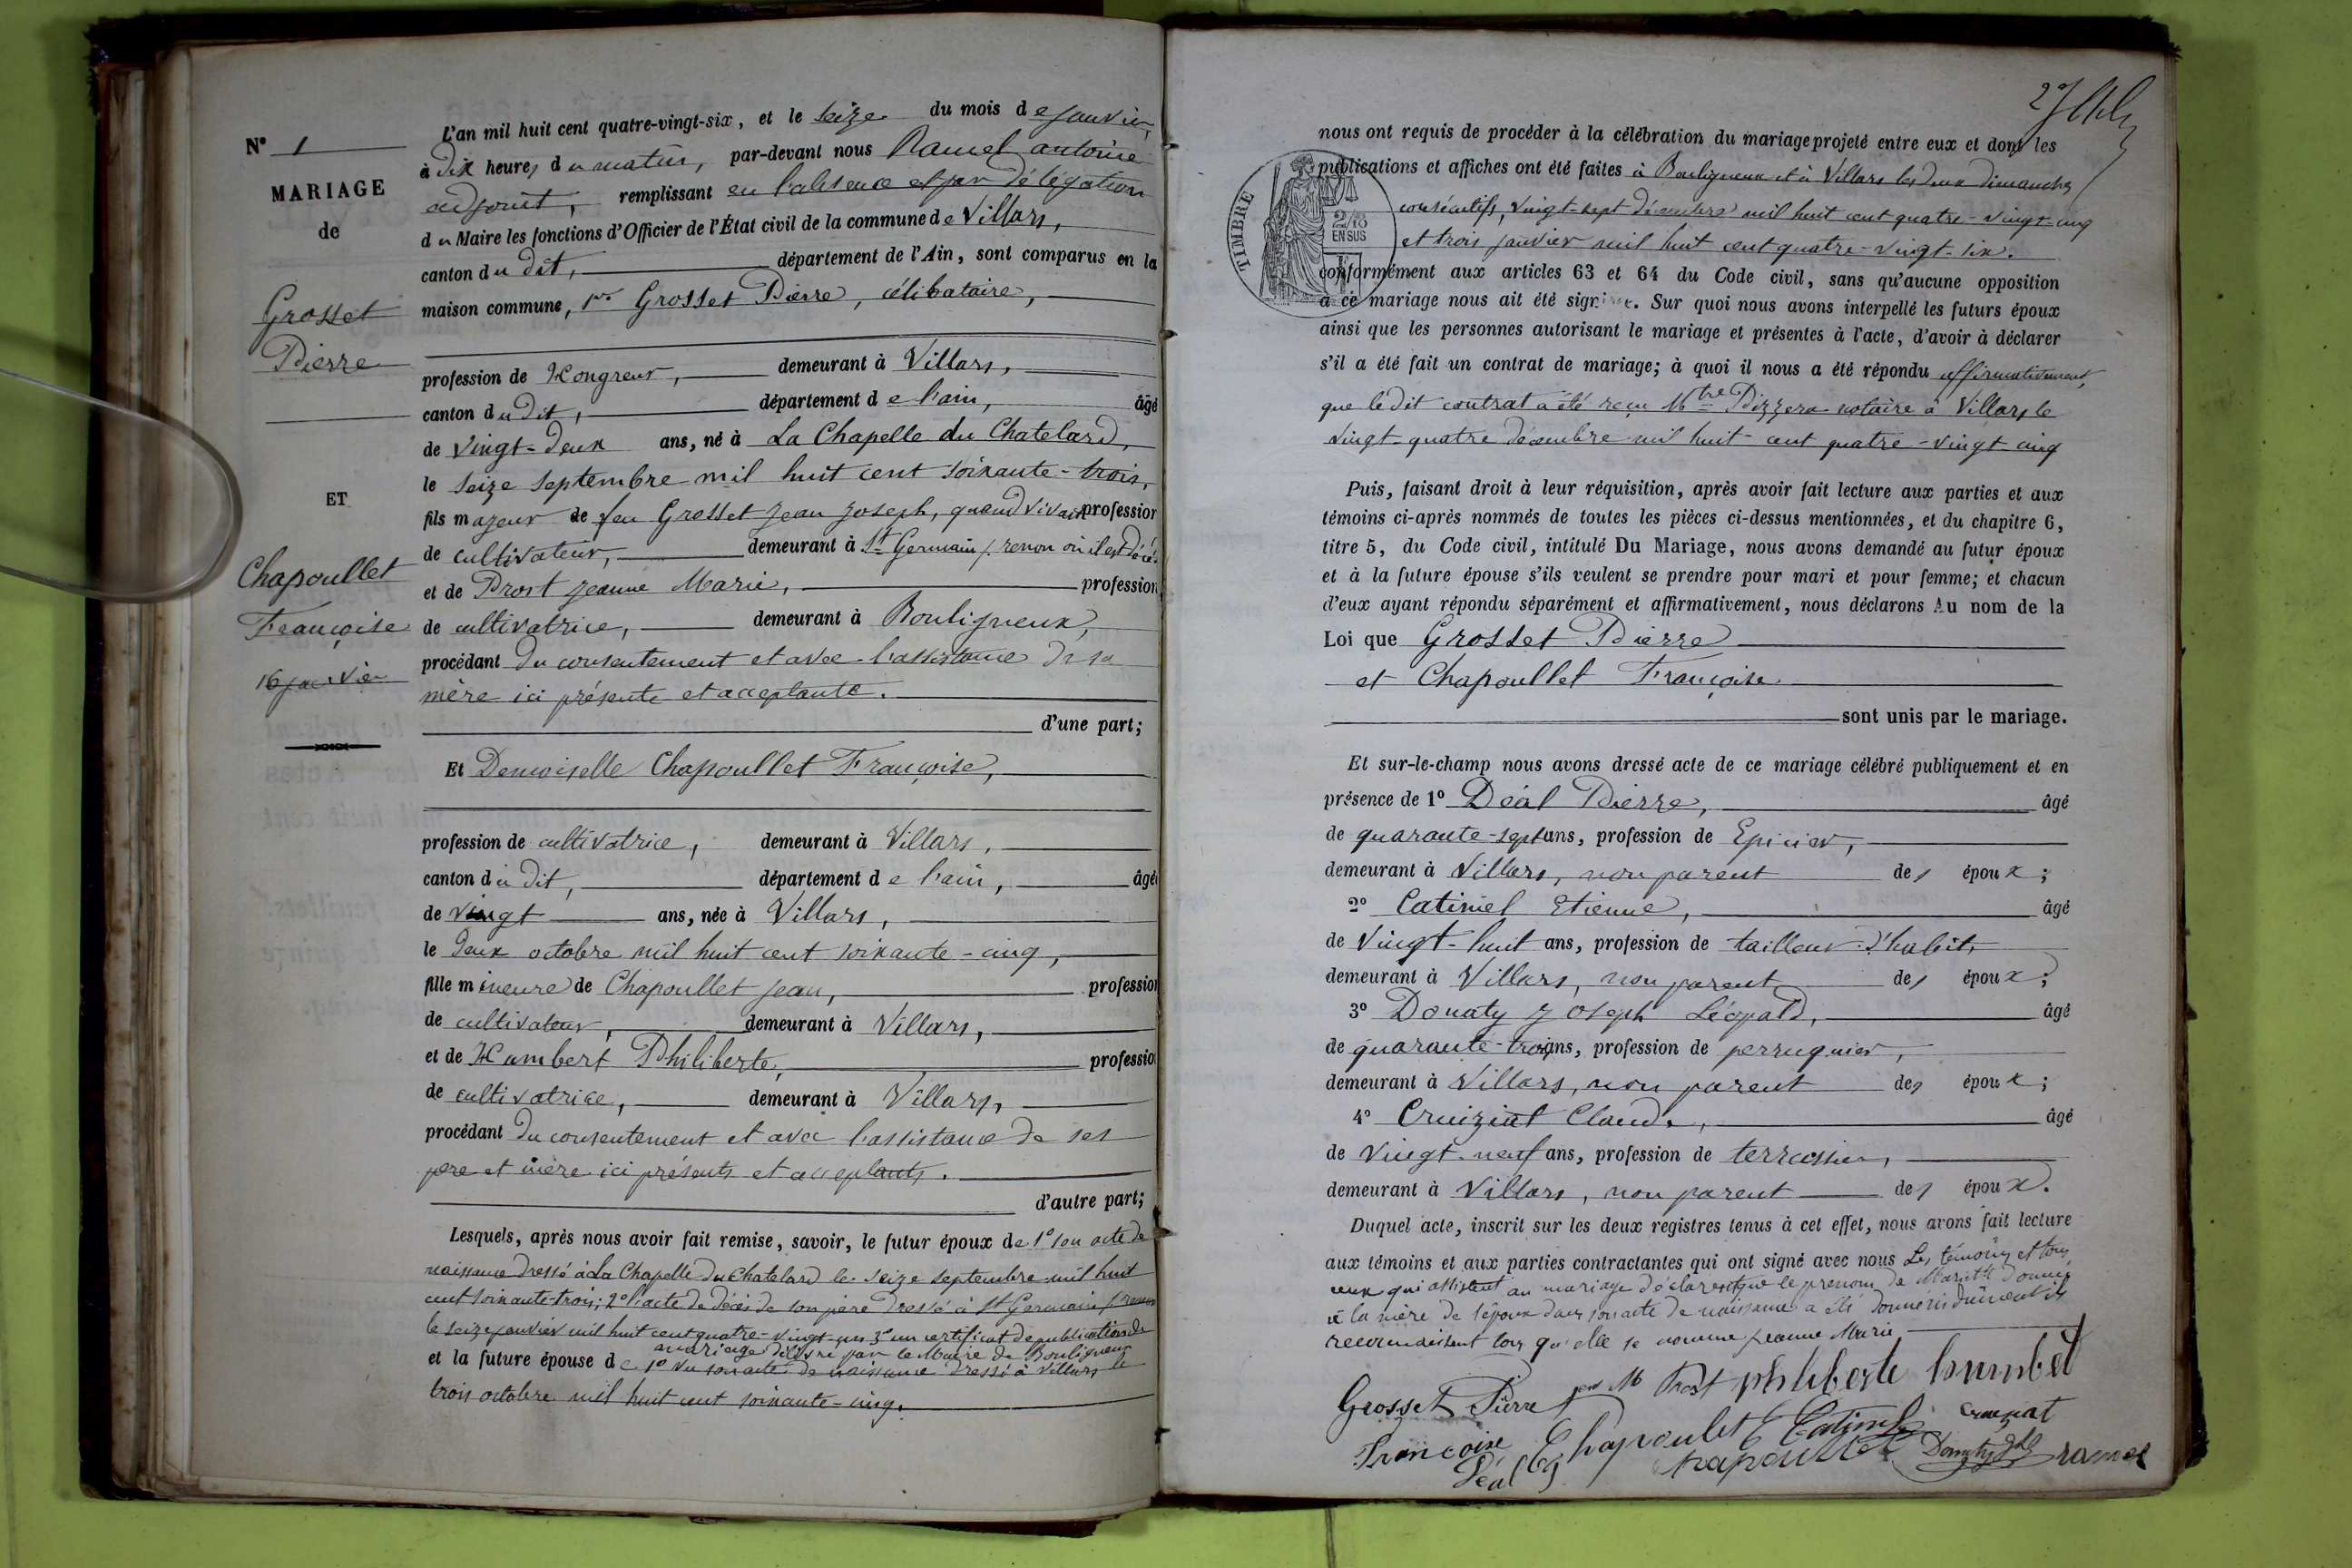 N° 1
MARIAGE
de
Grosset
Pierre
ET
Chapoullet
Françoise
16 janvier
L'an mil huit cent quatre-vingt-six, et le seize du mois de janvier,
à dix heures du matin, par-devant nous Ramel antoine
adjoint, remplissant en l'absence et par délégation
du Maire les fonctions d'Officier de l'État civil de la commune de Villars,
canton du dit, département de l'Ain, sont comparus en la
maison commune, 1re Grosset Pierre, célibataire,
profession de Hongreur, demeurant à Villars,
canton du dit, département de l'ain, âgé
de vingt-deux ans, né à La Chapelle du Chatelard,
le seize septembre mil huit cent soixante-trois,
fils majeur de feu Grosset Jean Joseph, quand vivait profession
de cultivateur, demeurant à St Germain s/ renon où il est décé.
et de Prost Jeanne Marie, profession
de cultivatrice, demeurant à Bouligneux,
procédant du consentement et avec l'assistance de sa
mère ici présente et acceptante.
d'une part;
Et Demoiselle Chapoullet Françoise,
profession de cultivatrice, demeurant à Villars,
canton du dit, département de l'ain, âgée
de vingt ans, née à Villars,
le deux octobre mil huit cent soixante-cinq,
fille mineure de Chapoullet Jean, profession
de cultivateur, demeurant à Villars,
et de Humbert Philiberte, profession
de cultivatrice, demeurant à Villars,
procédant du consentement et avec l'assistance de ses
père et mère ici présents et acceptants.
d'autre part;
Lesquels, après nous avoir fait remise, savoir, le futur époux de 1° son acte de
naissance dressé à La Chapelle du Chatelard le seize septembre mil huit
cent soixante-trois; 2° l'acte de décès de son père dressé à St Germain s/ renon
le seize janvier mil huit cent quatre-vingt-un 3° un certificat de publication de
mariage délivré par le Maire de Bouligneux
et la future épouse de 1° vu son acte de naissance dressé à Villars le
trois octobre mil huit cent soixante-cinq.
nous ont requis de procéder à la célébration du mariage projeté entre eux et dont les
publications et affiches ont été faites à Bouligneux et à Villars les deux dimanches
consécutifs, vingt-sept décembre mil huit cent quatre-vingt-cinq
et trois janvier mil huit cent quatre-vingt-six.
TIMBRE
2/10
EN SUS
conformément aux articles 63 et 64 du Code civil, sans qu'aucune opposition
à ce mariage nous ait été signifiée. Sur quoi nous avons interpellé les futurs époux
ainsi que les personnes autorisant le mariage et présentes à l'acte, d'avoir à déclarer
s'il a été fait un contrat de mariage; à quoi il nous a été répondu affirmativement,
que le dit contrat a été reçu Mtre Pizzera notaire à Villars le
vingt-quatre décembre mil huit cent quatre-vingt-cinq
Puis, faisant droit à leur réquisition, après avoir fait lecture aux parties et aux
témoins ci-après nommés de toutes les pièces ci-dessus mentionnées, et du chapitre 6,
titre 5, du Code civil, intitulé Du Mariage, nous avons demandé au futur époux
et à la future épouse s'ils veulent se prendre pour mari et pour femme; et chacun
d'eux ayant répondu séparément et affirmativement, nous déclarons Au nom de la
Loi que Grosset Pierre
et Chapoullet Françoise
sont unis par le mariage.
Et sur-le-champ nous avons dressé acte de ce mariage célébré publiquement et en
présence de 1° Déal Pierre, âgé
de quarante-sept ans, profession de Epicier,
demeurant à Villars, non parent des époux;
2° Catiniel Etienne, âgé
de Vingt-huit ans, profession de tailleur d'habits
demeurant à Villars, non parent des époux;
3° Donaty Joseph Léopold, âgé
de quarante-trois ans, profession de perruquier,
demeurant à Villars, non parent des époux;
4° Cruiziat Claude, âgé
de Vingt-neuf ans, profession de terrassier,
demeurant à Villars, non parent des époux.
Duquel acte, inscrit sur les deux registres tenus à cet effet, nous avons fait lecture
aux témoins et aux parties contractantes qui ont signé avec nous Les témoins et tous
ceux qui assistent au mariage déclarent que le prénom de Mariette donné
à la mère de l'époux dans son acte de naissance a été donné indûment ils
reconnaissent tous qu'elle se nomme Jeanne Marie
Grosset Pierre Prost philiberte humbert
Françoise Chapoulet E Catiniel Cruiziat
Déal Chapoullet Donaty ramel